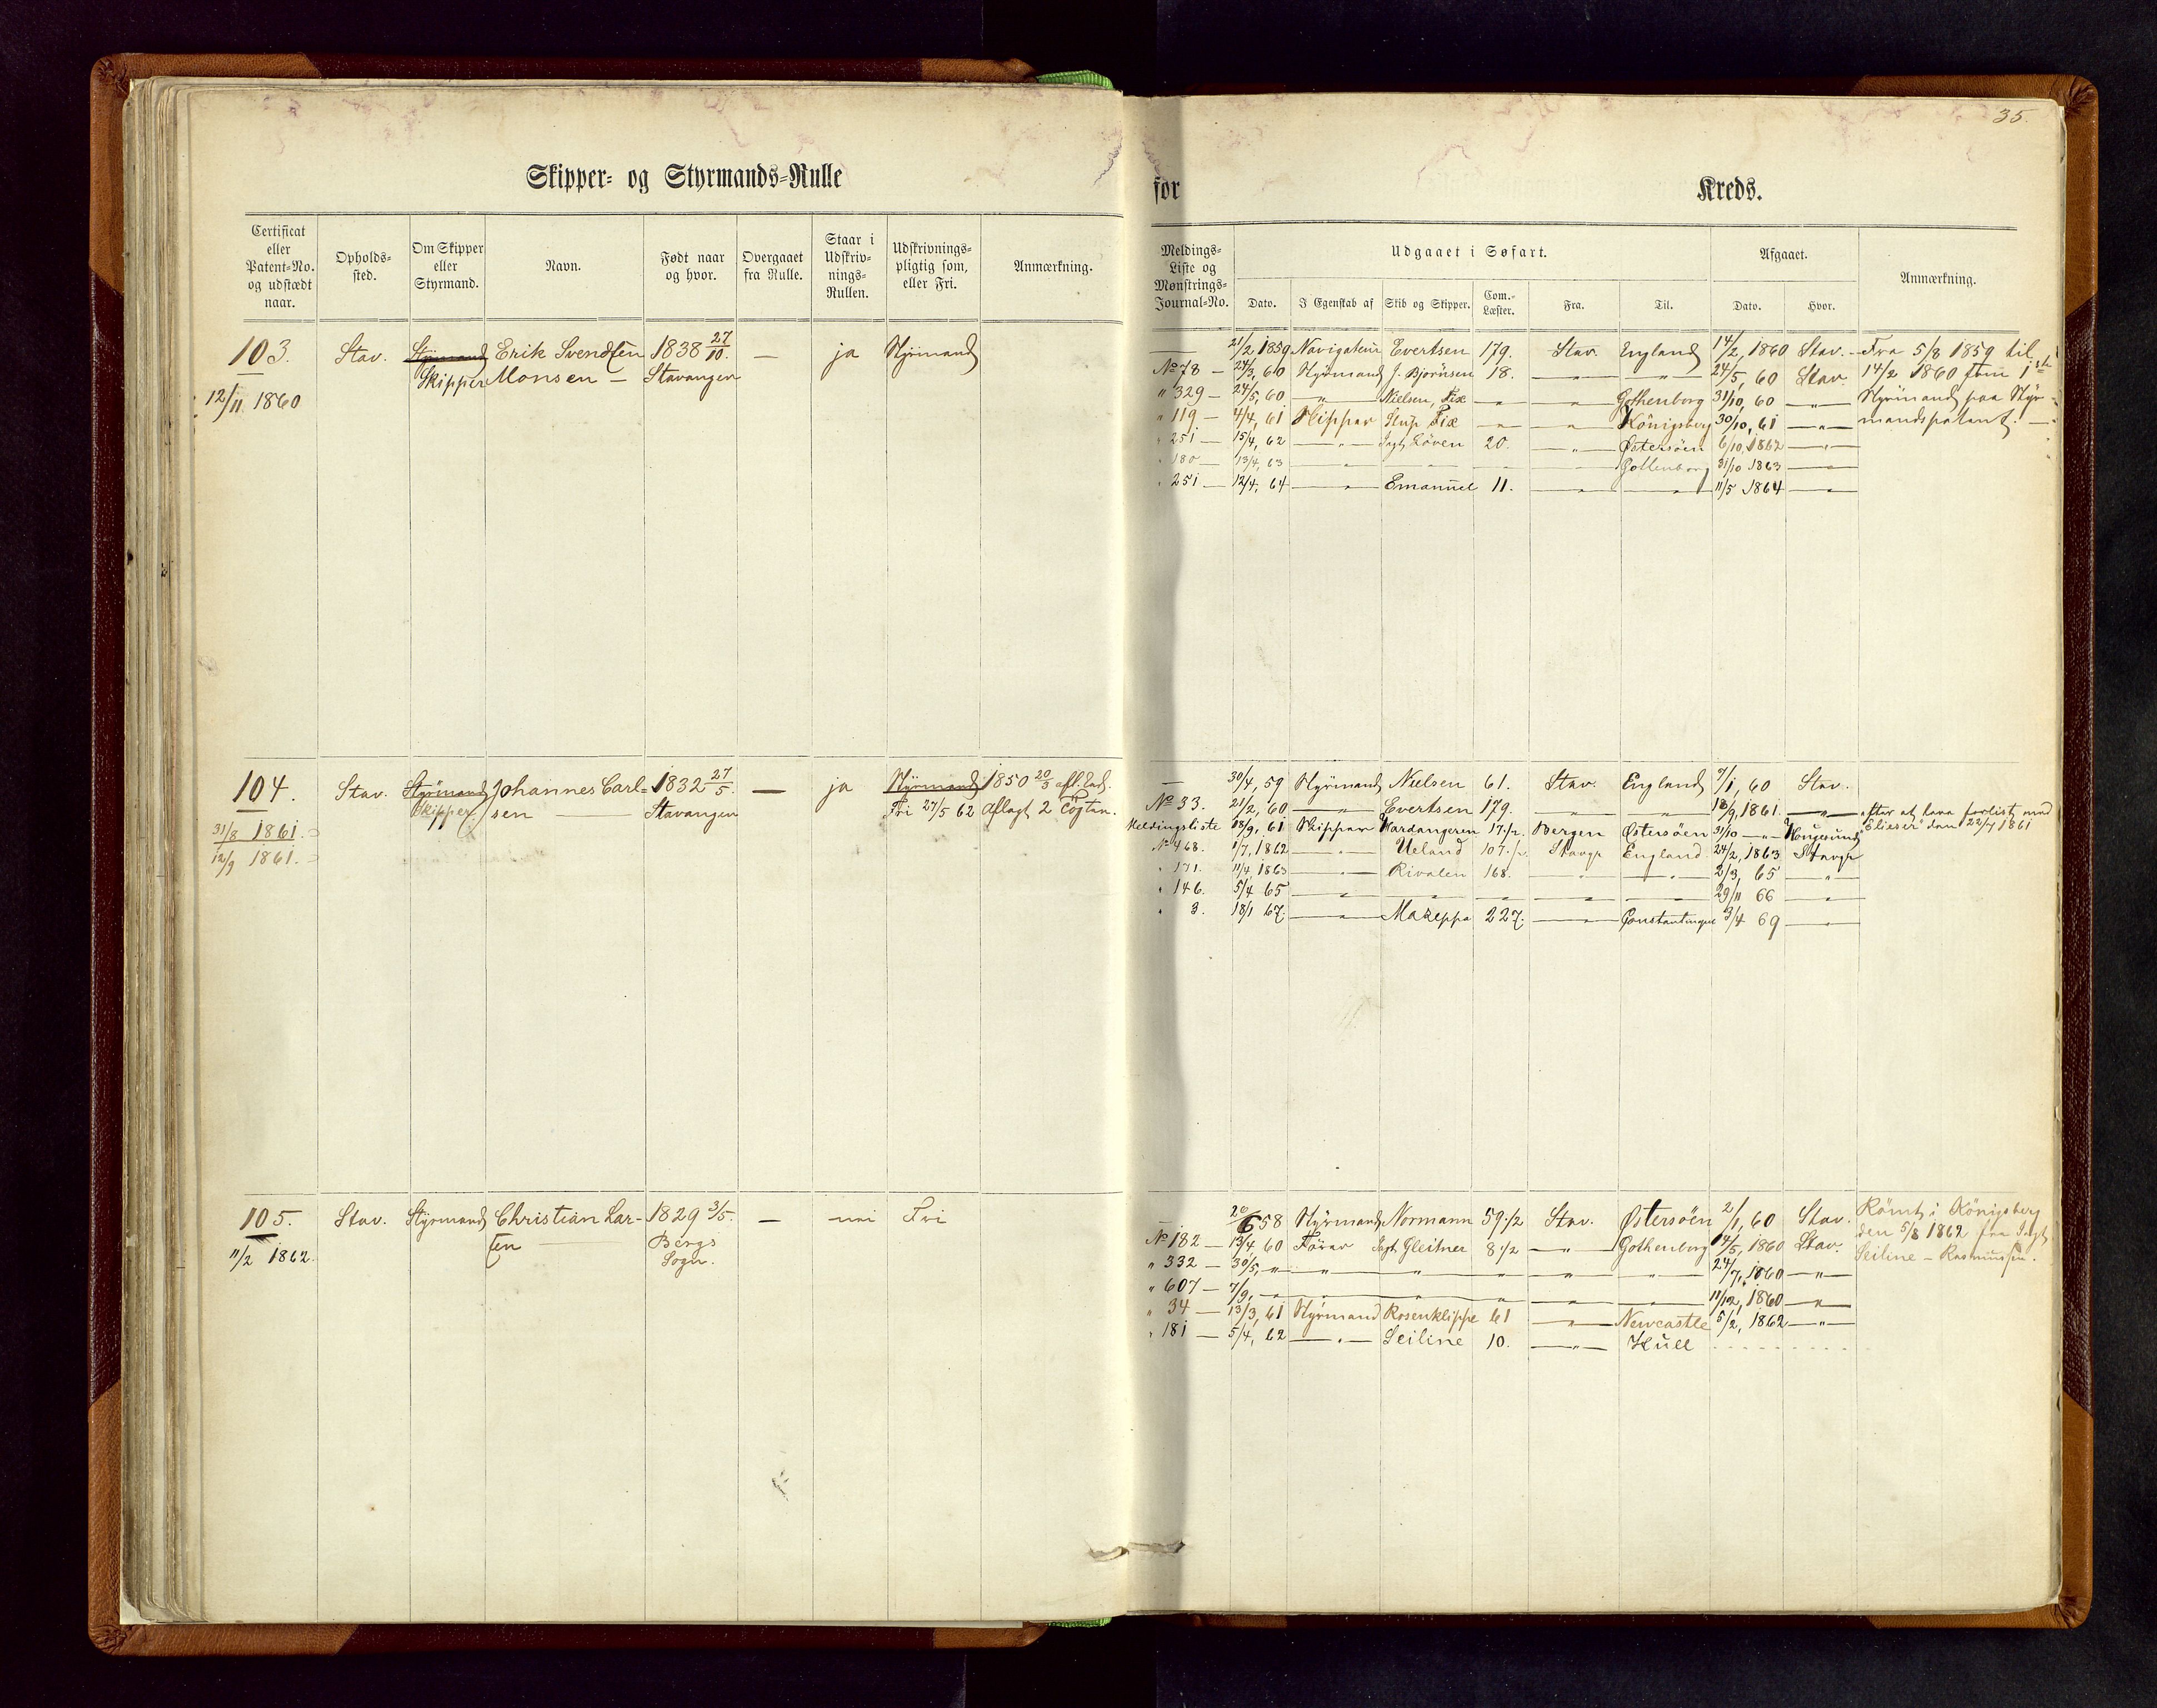 35.
Skipper- og Styrmands-Rulle
for Kreds.
Certificat eller Patent-No. og udstædt naar. Opholds-sted. Om Skipper eller Styrmand. Navn. Født naar og hvor. Overgaaet fra Rulle. Staar i Udskriv-nings-Rullen. Udskrivnings-pligtig som, eller Fri. Anmærkning.
Meldings-Liste og Mønstrings-Journal-No. Udgaaet i Søfart. Afgaaet. Anmærkning.
Dato. I Egenskab af Skib og Skipper. Com.-Læster. Fra. Til. Dato. Hvor.
103. Stav. Styrmand Erik Svendsen 1838 27/10. — ja Styrmand
Skipper Monsen — Stavanger
12/11 1860
— 21/2 1859 Navigateur Evertsen 179. Stav. England 14/2, 1860 Stav. — Fra 5/8 1859 til
No 78 — 24/3, 60 Styrmand J. Bjørnsen 18. — " — — " — 24/5, 60 Stav. 14/2 1860 som 1ste
" 329 — 24/5, 60 — " — Nielsen, Fix — " — — " — Gothenborg 31/10, 60 — " — Styrmand paa Styr-
" 119 — 4/4, 61 Skipper Slup Fix — " — — " — Königsberg 30/10, 61 — " — mandspatent. —
" 251 — 15/4, 62 — " — Jagt Löven 20. — " — Østersöen 6/10, 1862 — " —
" 180 — 13/4, 63 — " — — — — Gottenborg 31/10 1863 — " —
" 251 — 12/4, 64 — " — Emanuel 11. — " — — " — 11/5 1864 — " —
104. Stav. Styrmand Johannes Carl- 1832 27/5. — ja Styrmand 1850 20/3 afl. Ed.
Skipper sen — Stavanger Fri 27/5 62 Aflagt 2 Togter.
31/8 1861.
12/9 1861.
— 30/4, 59 Styrmand Nielsen 61. Stav. England 7/1, 60 Stav.
No 33. 21/2, 60 — " — Evertsen 179. — " — — " — 18/9, 1861. — " — efter at have forlist med
Meldingsliste 18/9, 61 Skipper Hardangeren 17 1/2. Bergen Østersöen 31/10 — " — Haugesund "Elieser" den 22/4 1861
No 468. 1/7, 1862 — " — Ueland 107 1/2. Stavgr England 24/2, 1863 Stavgr
" 171. 11/4, 1863 — " — Rivalen 168. — " — — " — 2/3, 65 — " —
" 146. 5/4 65 — " — — " — — " — — " — — " — 29/11 66 — " —
" 3. 18/1 67. — " — Mazeppa 227. — " — Constantinopel 3/4 69 — " —
105. Stav. Styrmand Christian Lar- 1829 3/5. — nei Fri
sen — Bergs
11/2 1862. Sogn.
— 20/6 58 Styrmand Normann 59 1/2 Stav. Østersöen 2/1, 60 Stav. Römt i Königsberg
No 182 — 13/4, 60 Förer Jagt Gleitner 8 1/2 — " — Gothenborg 14/5, 1860 Stav. den 5/8 1862 fra Jagt
" 332 — 30/5, " — " — " — " — " — " — 24/7, 1860 — " — Seiline — Rasmussen.
" 607 — 7/9, — " — " — " — " — " — 11/12, 1860 — " —
" 34 — 13/3, 61 Styrmand Rosenklippe 61 — " — Newcastle 5/2, 1862 — " —
" 181 — 5/4, 62 — " — Seiline 10. — " — Hull . . . . . . . . .